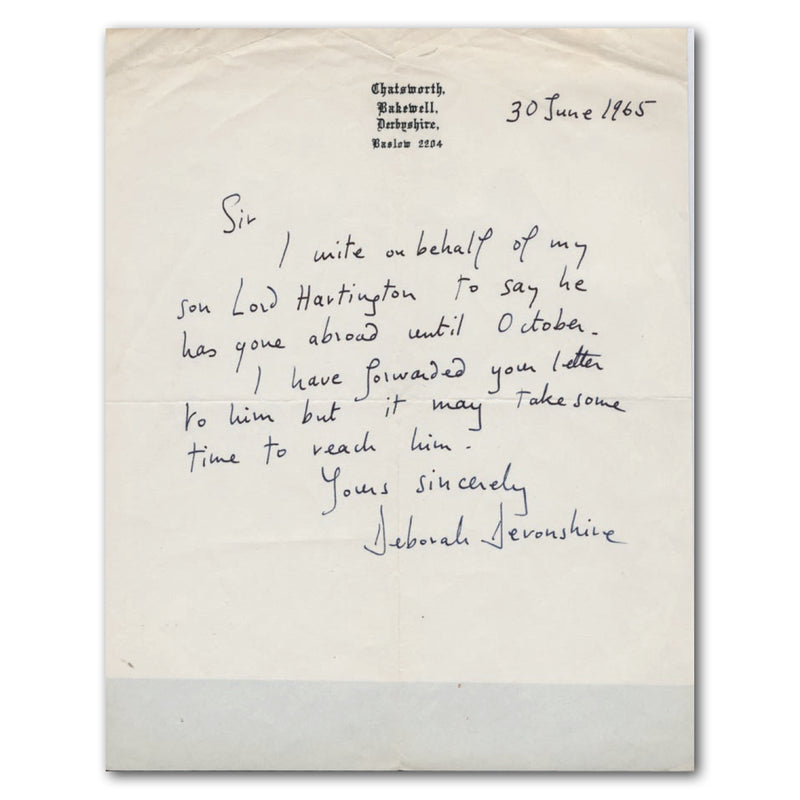 Chatsworth,
Bakewell,
Derbyshire,
Baslow 2204
30 June 1965
Sir
I write on behalf of my
son Lord Hartington to say he
has gone abroad until October.
I have forwarded your letter
to him but it may take some
time to reach him.
Yours sincerely
Deborah Devonshire